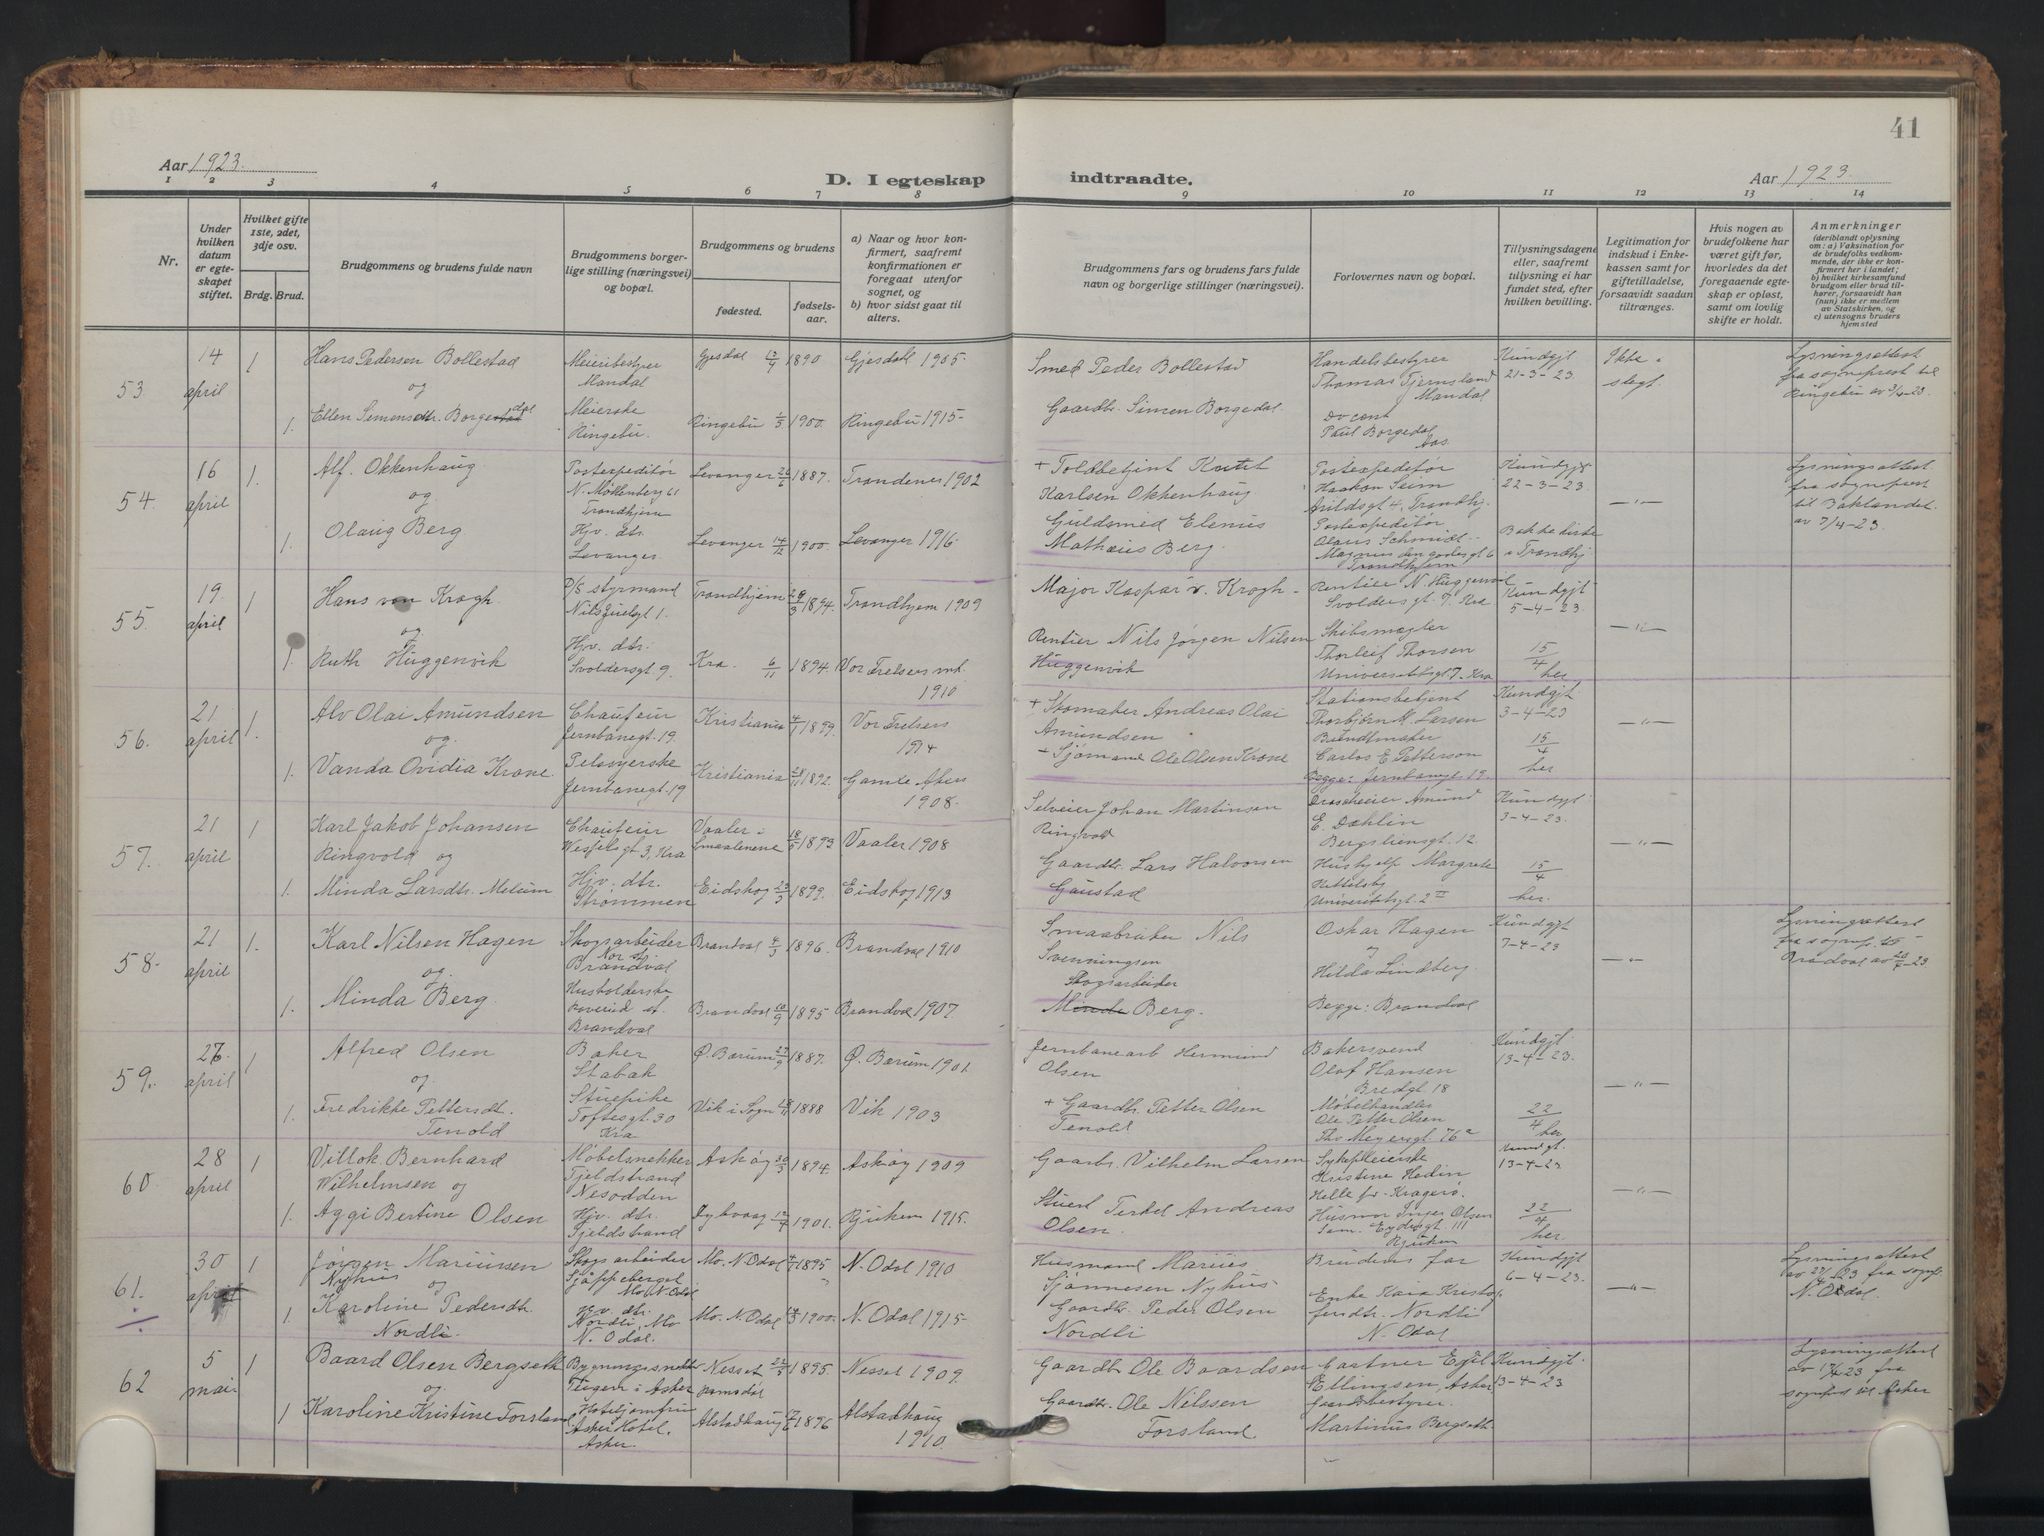 41
Aar 1923.
D. I egteskap indtraadte.
Aar 1923.
1 2 3 4 5 6 7 8 9 10 11 12 13 14
Nr.
Under hvilken datum er egteskapet stiftet.
Hvilket gifte 1ste, 2det, 3dje osv.
Brdg. Brud.
Brudgommens og brudens fulde navn
Brudgommens borgerlige stilling (næringsvei) og bopæl.
Brudgommens og brudens
fødested.
fødselsaar.
a) Naar og hvor konfirmert, saafremt konfirmationen er foregaat utenfor sognet, og
b) hvor sidst gaat til alters.
Brudgommens fars og brudens fars fulde navn og borgerlige stillinger (næringsvei).
Forlovernes navn og bopæl.
Tillysningsdagene eller, saafremt tillysning ei har fundet sted, efter hvilken bevilling.
Legitimation for indskud i Enkekassen samt for giftetilladelse, forsaavidt saadan tiltrænges.
Hvis nogen av brudefolkene har været gift før, hvorledes da det foregaaende egteskap er opløst, samt om lovlig skifte er holdt.
Anmerkninger
(deriblandt oplysning om: a) Vaksination for de brudefolks vedkommende, der ikke er konfirmert her i landet; b) hvilket kirkesamfund brudgom eller brud tilhører, forsaavidt han (hun) ikke er medlem av Statskirken, og c) utensogns bruders hjemsted
53 14 april 1 Hans Pedersen Bollestad Meieribestyrer Mandal Gjesdal 1890 Gjesdal 1905. Smed Peder Bollestad Handelsbestyrer Thomas Tjernsland Mandal Kundgjt 21-3-23. Ikke slegt. Lysningsattest fra sogneprest til Ringebu
og
1. Ellen Simensdtr. Borgedal Meierske Ringebu. Ringebu 1/5 1900. Ringebu 1915- Gaardbr. Simen Borgedal. Docent Paul Borgedal Aas.
54. 16 april 1. Alf. Okkenhaug Postexpeditør N. Møllenberg 61 Trondhjem Levanger 26/6 1887. Trondenes 1902 + Toldbetjent Knut Karlsen Okkenhaug Postexpeditør Haakon Seim Arildsgt 4, Trondhj. Kundgjt 22-3-23. -"- Lysningsattest fra sogneprest til Baklandet av 7/4-23.
og
1. Olaug Berg Hjv. dtr. Levanger. Levanger 14/12 1900. Levanger 1916. Guldsmed Elenus Mathæus Berg. Postexpeditør Olaus Schmidt Magnus den godes gt 6 Trondhjem Bakke kirke i Trondhj
55. 19. april 1 Hans von Krogh. D/S styrmand Nils Juelsgt 1. Trondhjem 1894. Trondhjem 1909 Major Kaspar v. Krogh - Rentier N. Huggenvik Svoldersgt. 7. Kra Kundgjt 5-4-23. -"-
og
1. Ruth Huggenvik Hjv. dtr. Svoldersgt 9. Kra. 6/11 1894. Vor Frelsers mk. 1910 Rentier Nils Jørgen Nilsen Huggenvik Skibsmægler Thorleif Thorsen Universitetsgt 7. Kra 15/4 her
56. 21 april 1. Alv Olai Amundsen Chaufeur Jernbanegt. 19 Kristiania 4/1 1899. Vor Frelsers 1914 + Skomaker Andreas Olai Amundsen Stationsbetjent Thorbjørn M. Larsen Kundgjt 3-4-23 -"-
og
1. Vanda Ovidia Krone. Pelssyerske Jernbanegt. 19 Kristiania 28/11 1892. Gamle Akers 1908. Sjømand Ole Olsen Krone Carlos E. Petterson Begge: Jernbanegt 19. 15/4 her
57. 21 april 1 Karl Jakob Johansen Ringvold og Chaufeur Wesselsgt 3, Kra Vaaler i Smaalenene 18/5 1893 Vaaler 1908 Selveier Johan Martinsen Ringvold Droscheeier Amund E. Dahlin Bergsliensgt. 12. Kundgjt 3-4-23. -"-
1. Minda Larsdtr. Melum Hjv. dtr. Strømmen Eidskog 23/3 1899. Eidskog 1913 Gaardbr. Lars Halvorsen Gaustad Hushjelp Margrete Kittelsby Universitetsgt. 2 II 15/4 her.
58. 21 april 1. Karl Nilsen Hagen Skogsarbeider Nor st. Brandval Brandval 4/3 1896. Brandval 1910 Smaabruker Nils Svenningsen Oskar Hagen og Hilda Lindberg. Kundgjt 7-4-23 -"- Lysningsattest fra sognepr. til Brandval
og
1. Minda Berg. Husholderske Roverud st. Brandval Brandval 10/9 1895 Brandval 1907. Skogsarbeider Berg. Begge: Brandval
59. 27. april 1 Alfred Olsen Baker Stabæk Ø. Bærum 27/9 1887. Ø. Bærum 1901 Jernbanearb Hermund Olsen Bakersvend Olaf Hansen Bredgt 18 Kundgjt 13-4-23. -"-
og
1. Fredrikke Pettersdt. Tenold Stuepike Toftesgt. 30 Kra Vik i Sogn 18/11 1888 Vik 1903 + Gaardbr. Petter Olsen Tenold Møbelhandler Ole Petter Olsen Ths Meyersgt. 76a 22/4 her
60. 28 april 1 Villok Bernhard Wilhelmsen og Møbelsnekker Fjeldstrand Nesodden Askøy 30/3 1894 Askøy 1909 Gaarbr. Vilhelm Larsen Sykepleierske Kristine Hedin Helle pr. Kragerø. Kundgt. 13-4-23 -"-
1. Aggi Bertine Olsen Hjv. dtr. Fjeldstrand Dybvaag 12/7 1901. Rjukan 1915. Stuert Terkel Andreas Olsen. Husmor Inger Olsen Sam. Eydesgt. 111 Rjukan 22/4 her.
61. 30 april 1 Jørgen Mariusen Nyhus og Skogsarbeider Sjøppeberget Mo, N. Odal Mo. N. Odal 4/1 1895 N. Odal 1910 Husmand Marius Sjønnesen Nyhus Brudens far Kundgjt 6-4-23. -"- Lysningsattest av 27/4-23 fra sognepr. N. Odal.
1 Karoline Pedersdtr. Nordli. Hjv. dtr. Nordli, Mo N. Odal. Mo. N. Odal 1900. N. Odal 1915- Gaardbr. Peder Olsen Nordli Enke Kaia Kristoffersdtr. Nordli N. Odal
62 5 mai 1 Baard Olsen Bergseth Bygningssnekker i Asker Nesset Romsdal 22/5 1895. Nesset 1909. Gaardbr Ole Baardsen Gartner Egil Ellingsen, Asker Kundgjt. 13-4-23 Lysningsattest av 17/4 23, fra sognepr til Asker
og
1 Karoline Kristine Forsland Hoteljomfru Asker Hotel. Asker. Alstadhaug 17/6 1896 Alstadhaug 1910. Gaardbr. Ole Nilssen Forsland. Gaardsbestyrer. Martinus Bergseth.